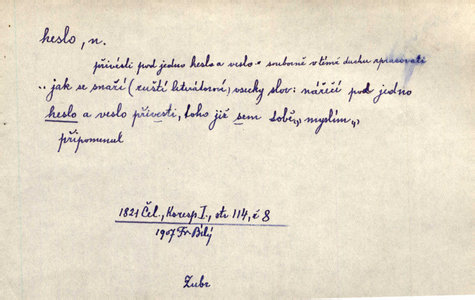 heslo, n.
přivésti pod jedno heslo a veslo = souborně v témž duchu zpracovati
.. jak se snaží (ruští literátorové) vsecky slov: nářečí pod jedno
heslo a veslo přivesti, toho již sem tobě„, myslím„,
připomenul
1821 Čel., Koresp I., str 114, č 8
1907 Fr Bílý
Zubr